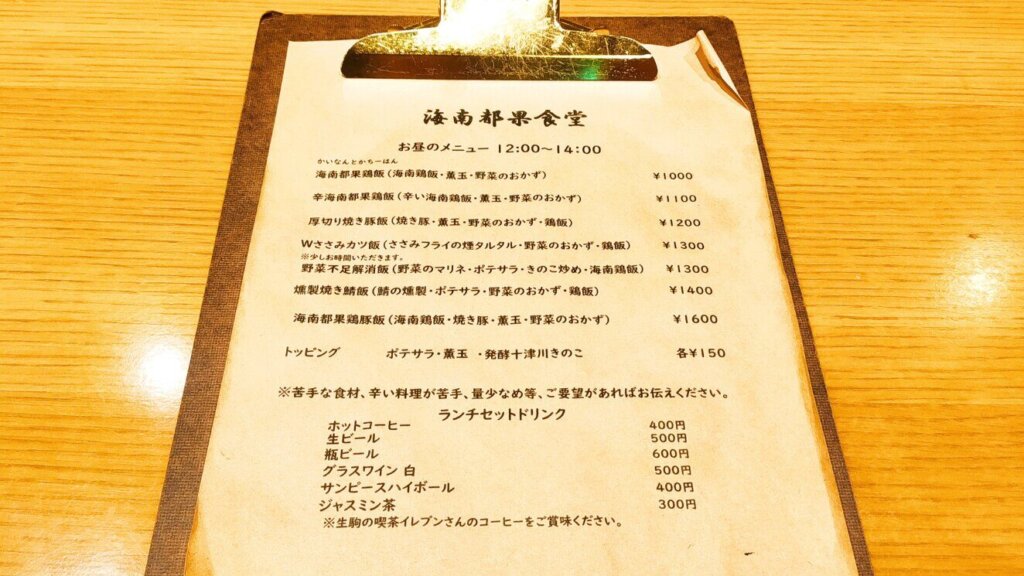 海南都果食堂
お昼のメニュー 12:00〜14:00
かいなんとかちーはん
海南都果鶏飯(海南鶏飯・薫玉・野菜のおかず) ¥1000
辛海南都果鶏飯(辛い海南鶏飯・薫玉・野菜のおかず) ¥1100
厚切り焼き豚飯(焼き豚・薫玉・野菜のおかず・鶏飯) ¥1200
Wささみカツ飯(ささみフライの煙タルタル・野菜のおかず・鶏飯) ¥1300
※少しお時間いただきます。
野菜不足解消飯(野菜のマリネ・ポテサラ・きのこ炒め・海南鶏飯) ¥1300
燻製焼き鯖飯(鯖の燻製・ポテサラ・野菜のおかず・鶏飯) ¥1400
海南都果鶏豚飯(海南鶏飯・焼き豚・薫玉・野菜のおかず) ¥1600
トッピング ポテサラ・薫玉 ・発酵十津川きのこ 各¥150
※苦手な食材、辛い料理が苦手、量少なめ等、ご要望があればお伝えください。
ランチセットドリンク
ホットコーヒー 400円
生ビール 500円
瓶ビール 600円
グラスワイン 白 500円
サンピースハイボール 400円
ジャスミン茶 300円
※生駒の喫茶イレブンさんのコーヒーをご賞味ください。